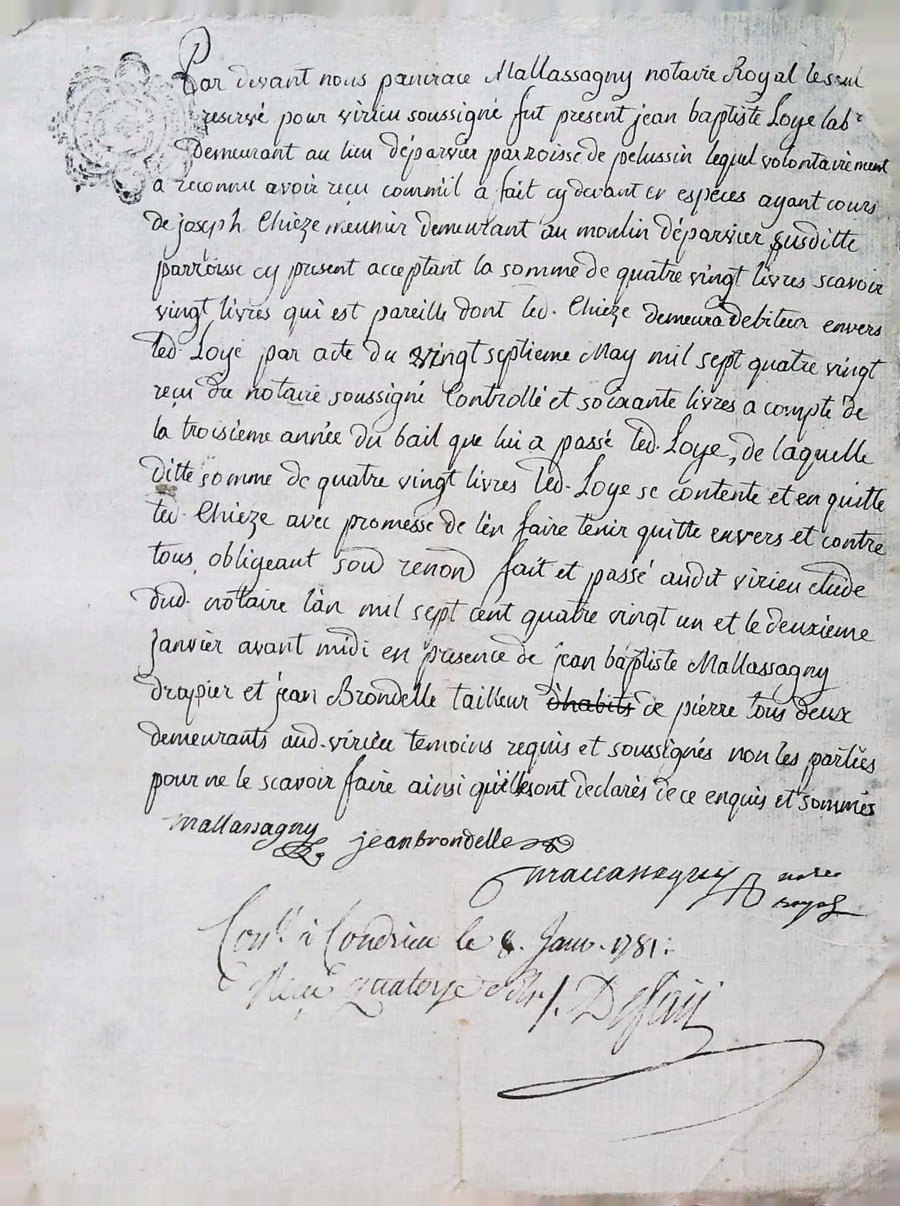 Par devant nous pancrace Mallassagny notaire Royal le seul
reservé pour virieu soussigné fut present jean baptiste Loye labr
Demeurant au lieu d'éparvier parroisse de pelussin lequel volontairement
a reconnu avoir reçu comm'il a fait cy devant en espéces ayant cours
de joseph Chieze meunier demeurant au moulin d'éparvier susditte
parroisse cy present acceptant la somme de quatre vingt livres scavoir
vingt livres qui est pareille dont led. Chieze demeura debiteur envers
led. Loye par acte du vingt septieme May mil sept quatre vingt
reçu du notaire soussigné Controllé et soixante livres a compte de
la troisieme année du bail que lui a passé led. Loye, de laquelle
ditte somme de quatre vingt livres led. Loye se contente et en quitte
led. Chieze avec promesse de l'en faire tenir quitte envers et contre
tous, obligeant soud renond fait et passé audit virieu etude
dud. notaire l'an mil sept cent quatre vingt un et le deuxieme
janvier avant midi en presence de jean baptiste Mallassagny
drapier et jean Brondelle tailleur d'habits de pierre tous deux
demeurants aud. virieu temoins requis et soussignés non les parties
pour ne le scavoir faire ainsi qu'elles ont declarés de ce enquis et sommés
mallassagny jeanbrondelle
mallassagny notre
royal
Con.lé à Condrieu le 8. Janv. 1781.
Reçu quatorze sols